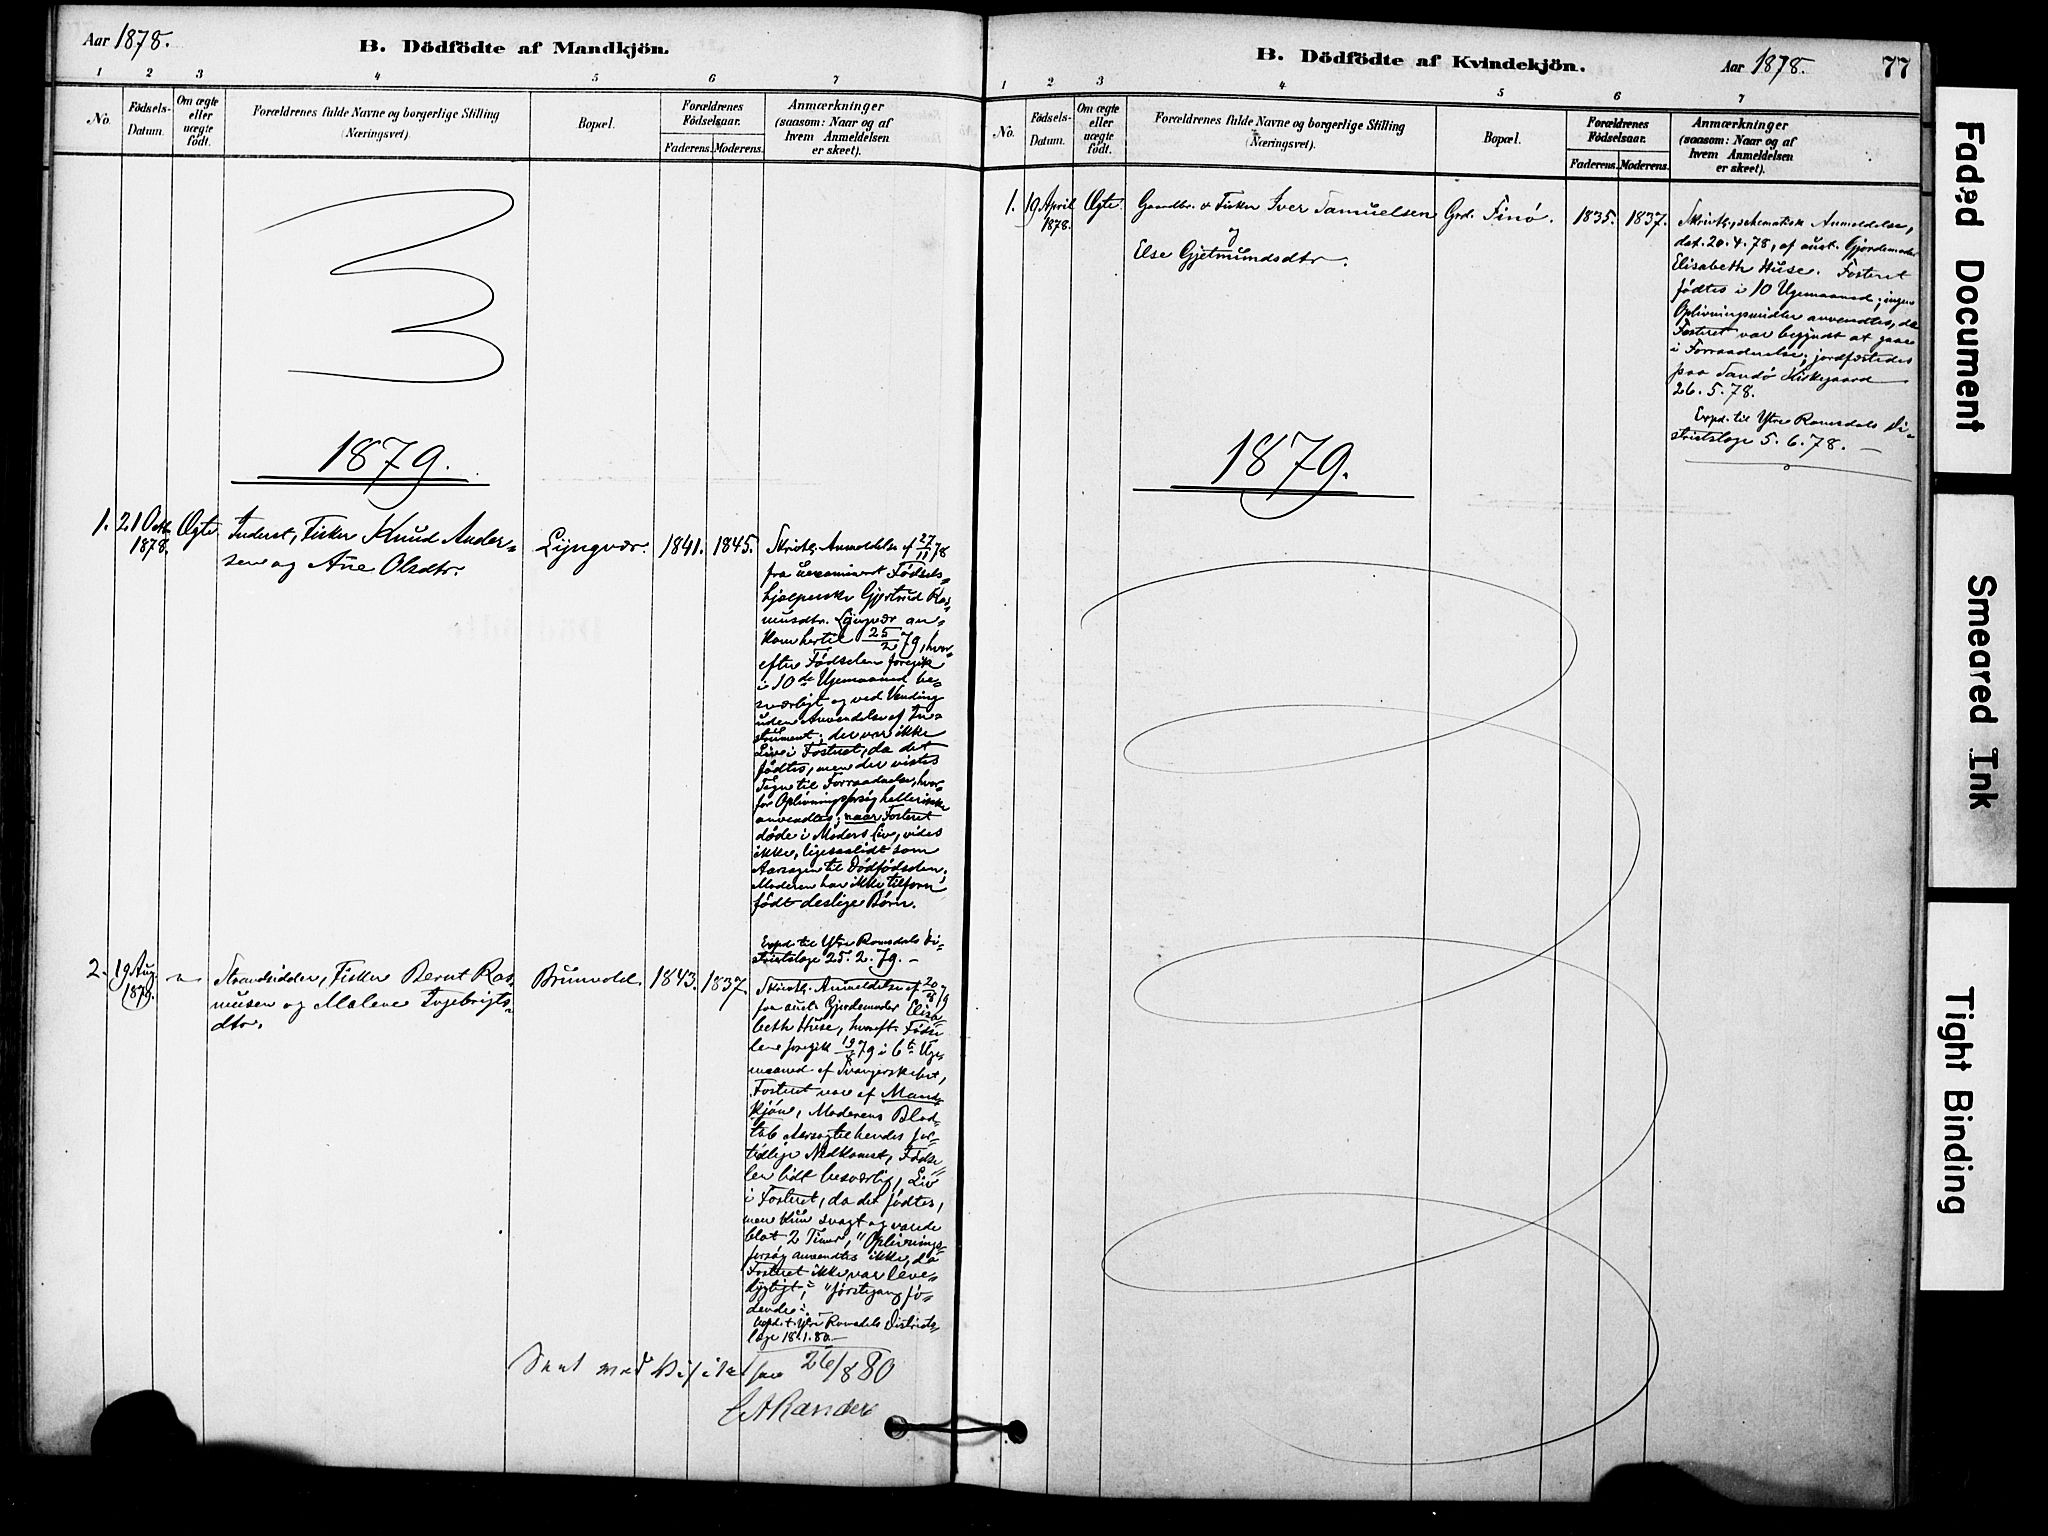 Aar 1878.
B. Dödfödte af Mandkjön.
1 2 3 4 5 6 7
No. Födsels-Datum. Om ægte eller uægte födt. Forældrenes fulde Navne og borgerlige Stilling (Næringsvei). Bopæl. Forældrenes Födselsaar. Faderens. Moderens. Anmærkninger (saasom: Naar og af hvem Anmeldelsen er skeet).
1879.
1. 21 Octb. 1878. Ægte. Inderst, Fisker Knud Ander-
sen og Ane Olsdtr.
Lyngvær. 1841. 1845.
Skriftl. Anmeldelse af 27/11 78
fra uexamineret Fødsels-
hjælperske Gjertrud Ras-
musdtr. Lyngvær an-
kom hertil 25/2 79, hvor-
efter Fødselen foregik
i 10de Ugemaaned be-
sværligt og ved Vending
uden Anvendelse af In-
strument; der var ikke
Liv i Fosteret, da det
fødtes, men der vistes
Tegn til Forraadnelse, hvor-
for Oplivningsforsøg heller ikke
anvendtes; naar Fosteret
døde i Moders Liv, vides
ikke, ligesaalidt som
Aarsagen til Dødfødselen;
Moderen har ikke tilforn
født deslige Børn.
Expd. til Ytre Romsdals Di-
strictslæge 25.2.79. —
2. 19 Aug. 1879. Strandsidder, Fisker Bernt Ras-
musen og Malene Ingebrigts-
dtr.
Brunvold. 1843. 1837.
Skriftl. Anmeldelse af 20/8 79
fra aust. Gjordemoder Elisa-
beth Huse, hvoreft. Fødse-
len foregik 19/8 79 i 6te Uge-
maaned af Svangerskabet,
Fosteret var af Mand-
kjøn, Moderens Blod-
tab Aarsag til hendes for-
tidlige Nedkomst, Fødse-
len lidt besværlig, Liv
i Fosteret, da det fødtes,
men kun svagt og varede
blot 2 Timer, "Oplivnings-
forsøg anvendtes ikke, da
Fosteret ikke var leve-
dygtigt", "førstegang fø-
dende".
Expd. t. Ytre Romsdals Districts-
læge 18.1.80. —
26/8 80
B. Dödfödte af Kvindekjön.
Aar 1878. 77
1 2 3 4 5 6 7
No. Födsels-Datum. Om ægte eller uægte födt. Forældrenes fulde Navne og borgerlige Stilling (Næringsvei). Bopæl. Forældrenes Födselsaar. Faderens. Moderens. Anmærkninger (saasom: Naar og af hvem Anmeldelsen er skeet).
1. 19 April 1878. Ægte. Gaardbr. & Fisker Iver Samuelsen
og
Else Gjetmundsdtr.
Grd. Finø. 1835. 1837.
Skriftl., schematisk Anmeldelse,
dat. 20.4.78, af aust. Gjordemoder
Elisabeth Huse. Fosteret
fødtes i 10 Ugemaaned; ingen
Oplivningsmidler anvendtes, da
Fosteret var begyndt at gaae
i Forraadnelse; jordfæstedes
paa Sandø Kirkegaard
26.5.78.
Expd. til Ytre Romsdals Di-
strictslæge 5.6.78. —
1879.
Faded Document
Smeared Ink
Tight Binding